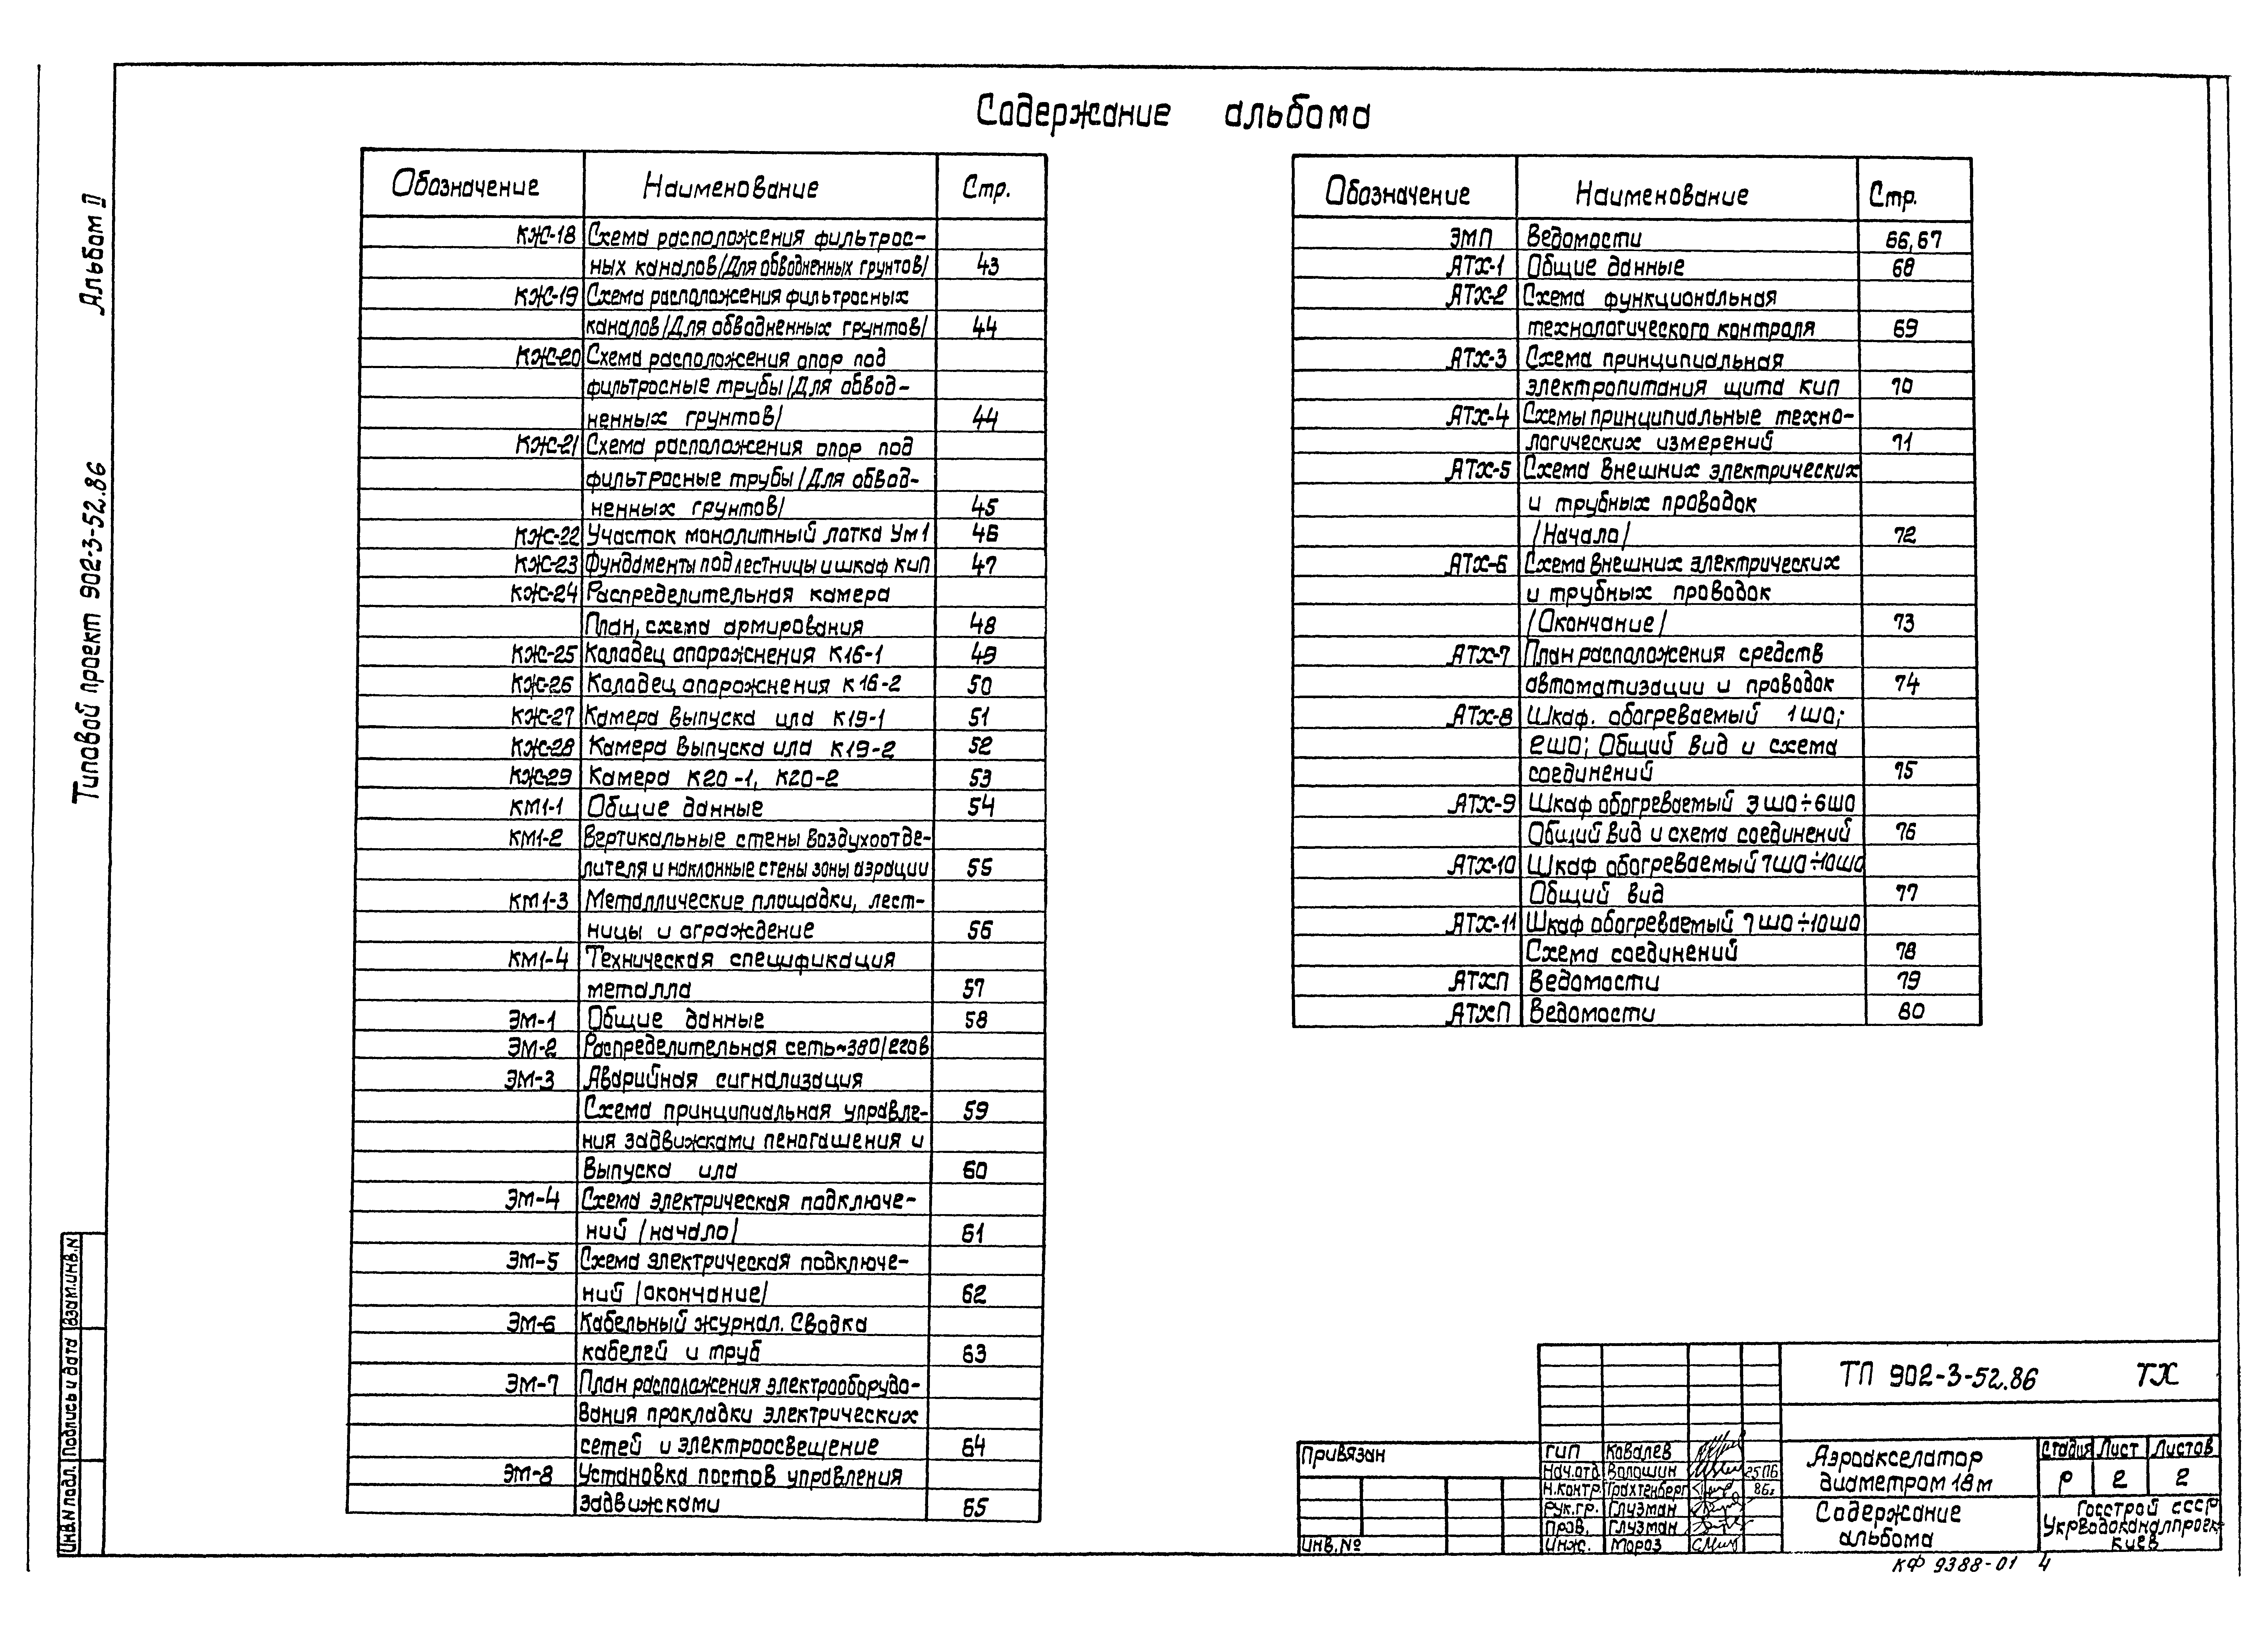 Содержание альбома
Альбом II
Типовой проект 902-3-52.86
Обозначение Наименование Стр.
КЖ-18 Схема расположения фильтрос-
ных каналов/Для обводненных грунтов/ 43
КЖ-19 Схема расположения фильтросных
каналов/Для обводненных грунтов/ 44
КЖ-20 Схема расположения опор под
фильтросные трубы/Для обвод-
ненных грунтов/ 44
КЖ-21 Схема расположения опор под
фильтросные трубы/Для обвод-
ненных грунтов/ 45
КЖ-22 Участок монолитный лотка Ум1 46
КЖ-23 Фундаменты под лестницы и шкаф КИП 47
КЖ-24 Распределительная камера
План, схема армирования 48
КЖ-25 Колодец опорожнения К16-1 49
КЖ-26 Колодец опорожнения К16-2 50
КЖ-27 Камера выпуска ила К19-1 51
КЖ-28 Камера выпуска ила К19-2 52
КЖ-29 Камера К20-1, К20-2 53
КМ1-1 Общие данные 54
КМ1-2 Вертикальные стены воздухоотде-
лителя и наклонные стены зоны аэрации 55
КМ1-3 Металлические площадки, лест-
ницы и ограждение 56
КМ1-4 Техническая спецификация
металла 57
ЭМ-1 Общие данные 58
ЭМ-2 Распределительная сеть~380/220в
ЭМ-3 Аварийная сигнализация
Схема принципиальная управле- 59
ния задвижками пеногашения и
выпуска ила 60
ЭМ-4 Схема электрическая подключе-
ний /начало/ 61
ЭМ-5 Схема электрическая подключе-
ний /окончание/ 62
ЭМ-6 Кабельный журнал. Сводка
кабелей и труб 63
ЭМ-7 План расположения электрооборудо-
вания прокладки электрических
сетей и электроосвещение 64
ЭМ-8 Установка постов управления
задвижками 65
Обозначение Наименование Стр.
ЭМП Ведомости 66,67
АТХ-1 Общие данные 68
АТХ-2 Схема функциональная
технологического контроля 69
АТХ-3 Схема принципиальная
электропитания щита КИП 70
АТХ-4 Схемы принципиальные техно-
логических измерений 71
АТХ-5 Схема внешних электрических
и трубных проводок
/Начало/ 72
АТХ-6 Схема внешних электрических
и трубных проводок
/Окончание/ 73
АТХ-7 План расположения средств
автоматизации и проводок 74
АТХ-8 Шкаф. обогреваемый 1ШО;
2ШО; Общий вид и схема
соединений 75
АТХ-9 Шкаф обогреваемый 3ШО÷6ШО
Общий вид и схема соединений 76
АТХ-10 Шкаф обогреваемый 7ШО÷10ШО
Общий вид 77
АТХ-11 Шкаф обогреваемый 7ШО÷10ШО
Схема соединений 78
АТХП Ведомости 79
АТХП Ведомости 80
Инв.N подл. Подпись и дата Взам.инв.N
Привязан
Инв.№
ТП 902-3-52.86 ТХ
ГИП Ковалев
Нач.отд. Волошин 25.ПБ
Н.контр. Трахтенберг 86г
Рук.гр. Глузман
Пров. Глузман
Инж. Мороз
Аэроакселатор
диаметром 18м
Стадия Лист Листов
Р 2 2
Содержание
альбома
Госстрой СССР
Укрводоканалпроект
Киев
КФ 9388-01 4